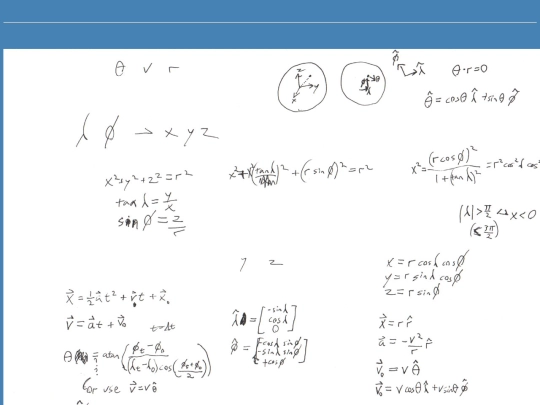 θ v r
z
y
x
φ̂
λ̂
θ·r=0
θ̂ = cosθ λ̂ + sinθ φ̂
λ φ → x y z
x²+y²+z²=r²
tan λ = y/x
sin φ = z/r
+(r sin φ)²=r²
x²= (r cos φ)² / 1+(tan λ)² = r² cos²λ cos²
|λ| > π/2 ↔ x<0
(< 3π/2)
z
x = r cos λ cos φ
y = r sin λ cos φ
z = r sin φ
x⃗ = ½ a⃗ t² + v⃗₀ t + x⃗₀
v⃗ = a⃗t + v⃗₀ t=Δt
λ̂ = [-sin λ cos λ 0]
φ̂ = [-cos λ sin φ -sin λ sin φ +cos φ]
x⃗ = r r̂
a⃗ = -v²/r r̂
v⃗₀ = v θ̂
v⃗₀ = v cosθ λ̂ + v sinθ φ̂
θ = atan (φₜ-φ₀ / (λₜ-λ₀) cos(φₜ+φ₀ / 2))
or use v⃗ = v θ̂